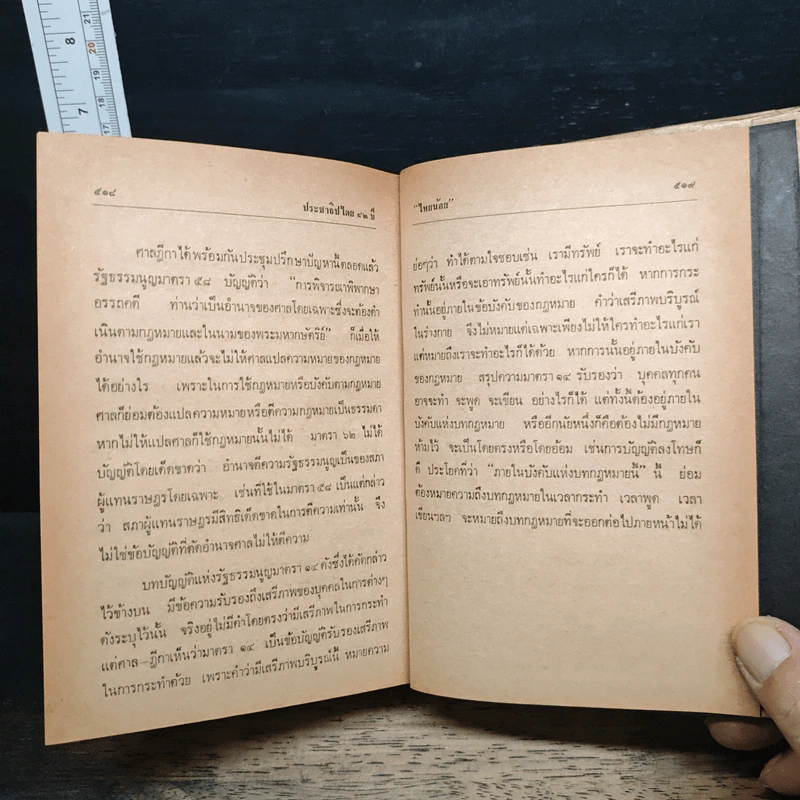 8
7
21
20
19
18
17
๕๑๘
ประชาธิปไตย ๔๒ ปี
ศาลฎีกาได้พร้อมกันประชุมปรึกษาบัญหานี้ตลอดแล้ว
รัฐธรรมนูญมาตรา ๕๘ บัญญัติว่า “การพิจารณาพิพากษา
อรรถคดี ท่านว่าเป็นอำนาจของศาลโดยเฉพาะซึ่งจะต้องดำ
เนินตามกฎหมายและในนามของพระมหากษัตริย์” ก็เมื่อให้
อำนาจใช้กฎหมายแล้วจะไม่ให้ศาลแปลความหมายของกฎหมาย
ได้อย่างไร เพราะในการใช้กฎหมายหรือบังคับตามกฎหมาย
ศาลก็ย่อมต้องแปลความหมายหรือตีความกฎหมายเป็นธรรมดา
หากไม่ให้แปลศาลก็ใช้กฎหมายนั้นไม่ได้ มาตรา ๖๒ ไม่ได้
บัญญัติโดยเด็ดขาดว่า อำนาจตีความรัฐธรรมนูญเป็นของสภา
ผู้แทนราษฎรโดยเฉพาะ เช่นที่ใช้ในมาตรา ๕๘ เป็นแต่กล่าว
ว่า สภาผู้แทนราษฎรมีสิทธิเด็ดขาดในการตีความเท่านั้น จึง
ไม่ใช่ข้อบัญญัติที่ตัดอำนาจศาลไม่ให้ตีความ
บทบัญญัติแห่งรัฐธรรมนูญมาตรา ๑๔ ดังซึ่งได้คัดกล่าว
ไว้ข้างบน มีข้อความรับรองถึงเสรีภาพของบุคคลในการต่างๆ
ดังระบุไว้นั้น จริงอยู่ไม่มีคำโดยตรงว่ามีเสรีภาพในการกระทำ
แต่ศาล–ฎีกาเห็นว่ามาตรา ๑๔ เป็นข้อบัญญัติรับรองเสรีภาพ
ในการกระทำด้วย เพราะคำว่ามีเสรีภาพบริบูรณ์นี้ หมายความ
“ไทยน้อย”
๕๑๙
ย่อๆว่า ทำได้ตามใจชอบเช่น เรามีทรัพย์ เราจะทำอะไรแก่
ทรัพย์นั้นหรือจะเอาทรัพย์นั้นทำอะไรแก่ใครก็ได้ หากการกระ
ทำนั้นอยู่ภายในข้อบังคับของกฎหมาย คำว่าเสรีภาพบริบูรณ์
ในร่างกาย จึงไม่หมายแต่เฉพาะเพียงไม่ให้ใครทำอะไรแก่เรา
แต่หมายถึงเราจะทำอะไรก็ได้ด้วย หากการนั้นอยู่ภายในบังคับ
ของกฎหมาย สรุปความมาตรา ๑๔ รับรองว่า บุคคลทุกคน
อาจจะทำ จะพูด จะเขียน อย่างไรก็ได้ แต่ทั้งนี้ต้องอยู่ภายใน
บังคับแห่งบทกฎหมาย หรืออีกนัยหนึ่งก็คือต้องไม่มีกฎหมาย
ห้ามไว้ จะเป็นโดยตรงหรือโดยอ้อม เช่นการบัญญัติลงโทษก็
ดี ประโยคที่ว่า “ภายในบังคับแห่งบทกฎหมายนี้” นี้ ย่อม
ต้องหมายความถึงบทกฎหมายในเวลากระทำ เวลาพูด เวลา
เขียนฯลฯ จะหมายถึงบทกฎหมายที่จะออกต่อไปภายหน้าไม่ได้